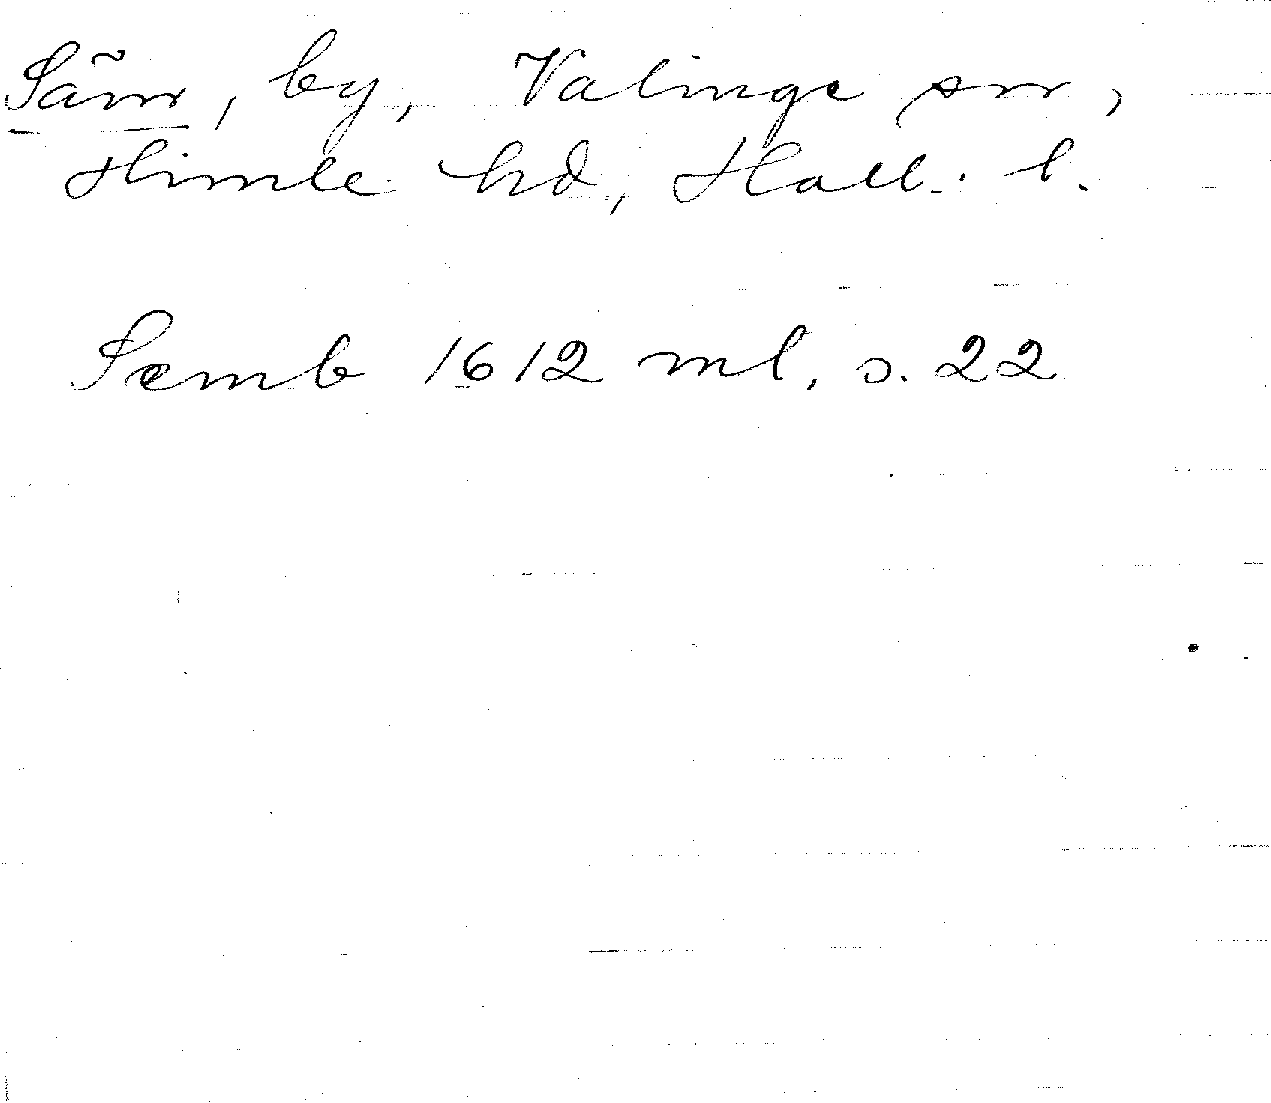 Säm, by, Valinge sn,
Himle hd, Hall. l.
Semb 1612 ml, s. 22